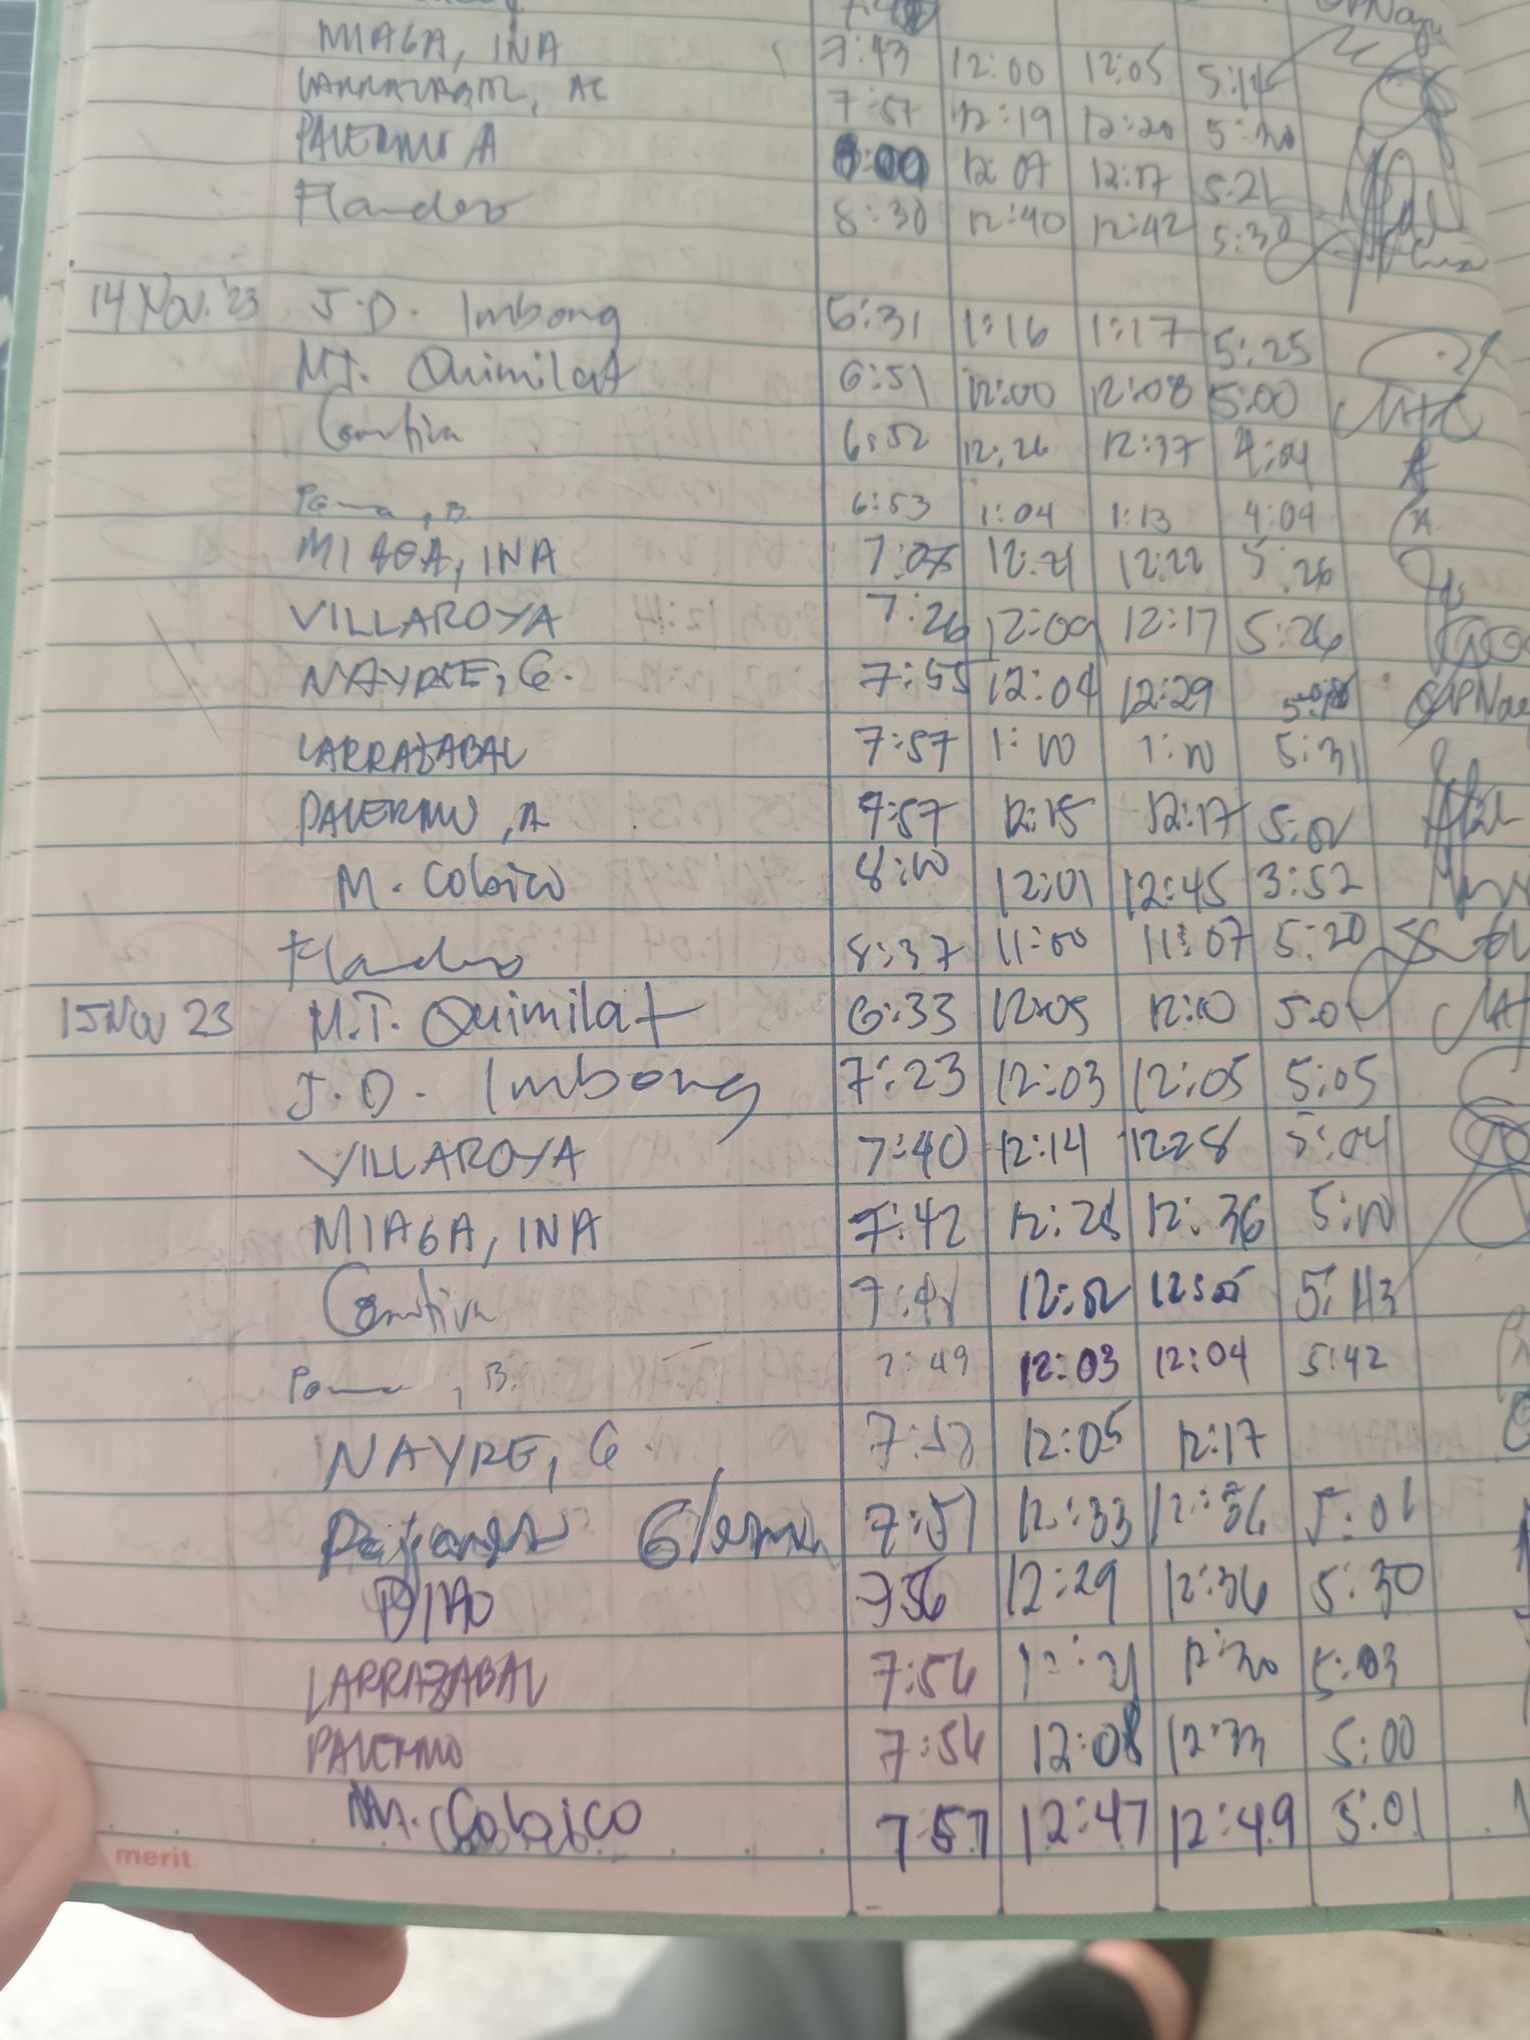 MIAGA, INA 7:43 12:00 12:05 5:14
LARRAZABAL, AC 7:57 12:19 12:20 5:30
PALERMO A 8:00 12:07 12:17 5:21
Flandes 8:30 12:40 12:42 5:30
14 Nov. '23 J.D. Imbong 6:31 1:16 1:17 5:25
M.T. Quimilat 6:51 12:00 12:08 5:00
6:52 12:26 12:37 4:04
, B. 6:53 1:04 1:13 4:04
MIAGA, INA 12:21 12:22 5:26
VILLAROYA 7:26 12:09 12:17 5:26
NAYRE, G. 7:55 12:04 12:29
LARRAZABAL 7:57 1:10 1:10 5:31
PALERMO, A 7:57 12:15 12:17 5:02
M. Cobico 8:10 12:01 12:45 3:52
Flandes 8:37 11:00 11:07 5:20
15 Nov 23 M.T. Quimilat 6:33 12:05 12:10
J.D. Imbong 7:23 12:03 12:05 5:05
VILLAROYA 7:40 12:14 12:28 5:04
MIAGA, INA 7:42 12:36 5:10
12:02 12:05 5:43
, B. 7:49 12:03 12:04 5:42
NAYRE, G. 12:05 12:17
7:51 12:33 12:36 5:01
7:56 12:29 12:36 5:30
LARRAZABAL 7:56 12:30 5:03
PALERMO 7:56 12:08 12:33 5:00
M. Cobico 7:57 12:47 12:49 5:01
merit